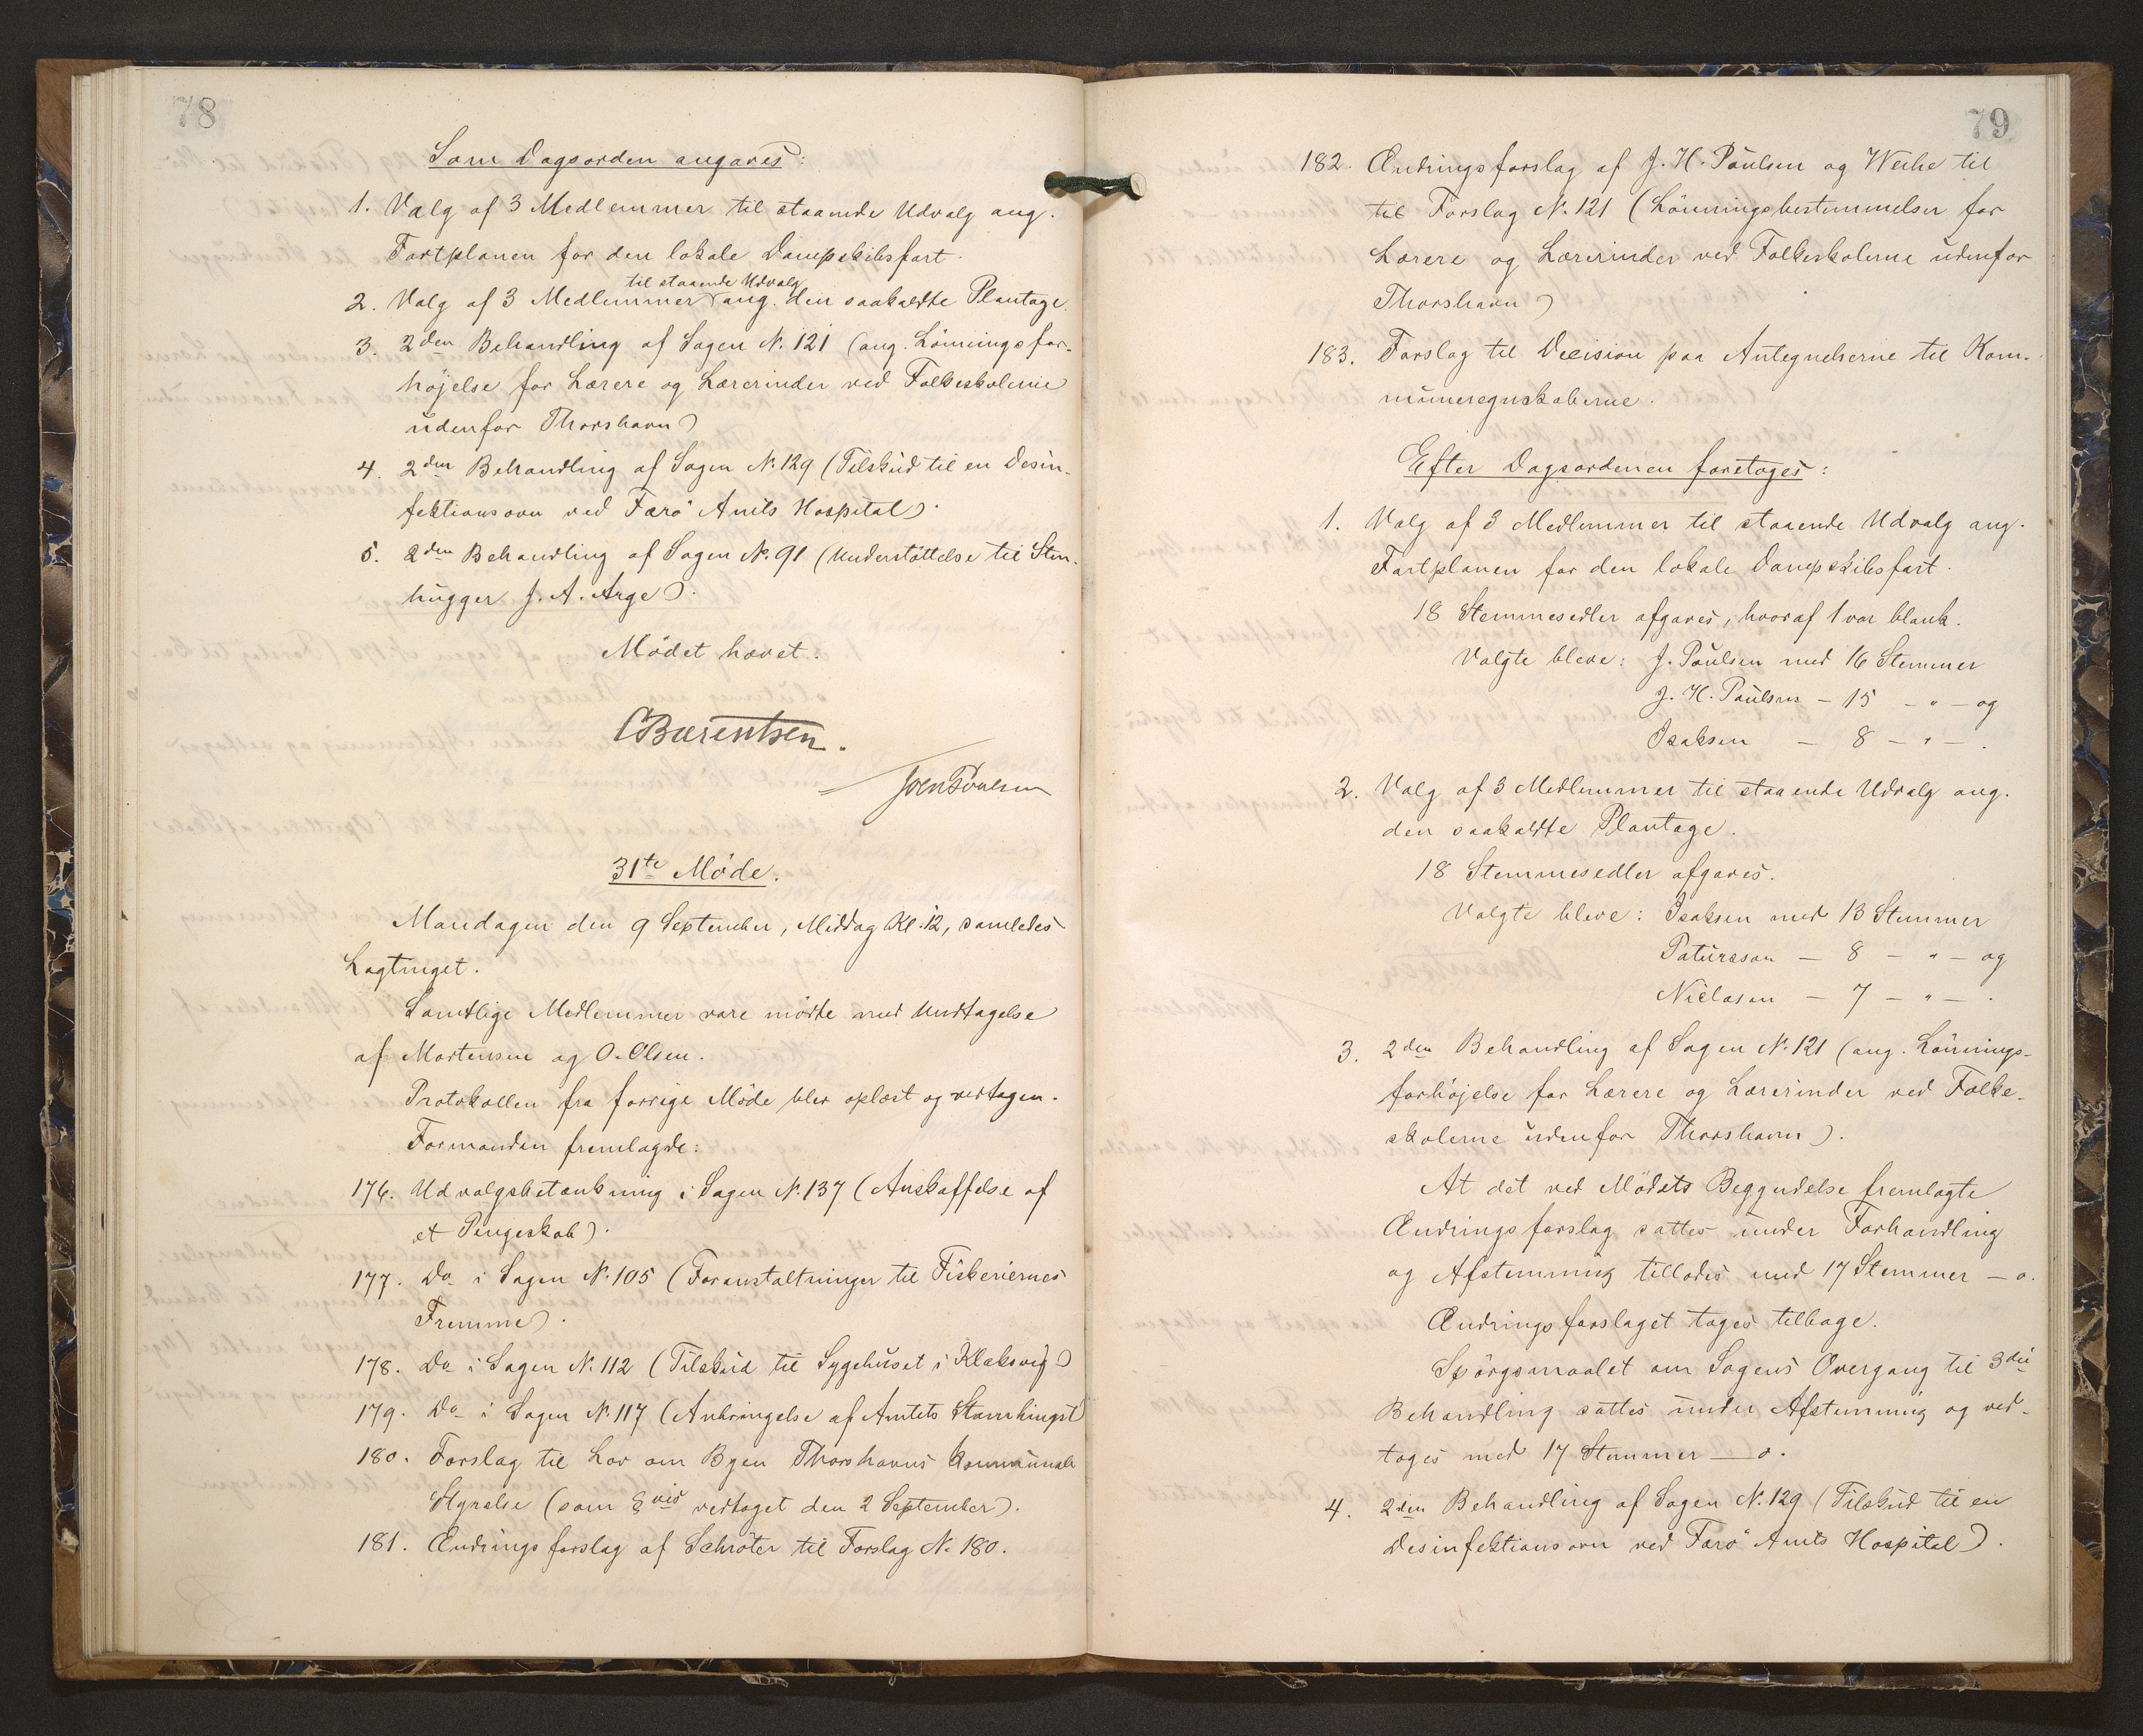 78
Som Dagsorden angaves:
1. Valg af 3 Medlemmer til staaende Udvalg ang.
Fartplanen for den lokale Dampskibsfart.
til staaende Udvalg
2. Valg af 3 Medlemmer ang. den saakaldte Plantage.
3. 2den Behandling af Sagen N. 121 (ang. Lönningsfor-
højelse for Lærere og Lærerinder ved Folkeskolerne
udenfor Thorshavn)
4. 2den Behandling af Sagen N. 129 (Tilskud til en Desin-
fektionsovn ved Færö Amts Hospital).
5. 2den Behandling af Sagen N. 91 (Understöttelse til Sten-
hugger J. A. Arge).
Mödet hævet.
CBærentsen.
Joen Poulsen
31te Möde.
Mandagen den 9 September, Middag Kl. 12, samledes
Lagtinget.
Samtlige Medlemmer vare mödte med Undtagelse
af Mortensen og O. Olsen.
Protokollen fra forrige Möde blev oplæst og vedtagen.
Formanden fremlagde:
176. Udvalgsbetænkning i Sagen N. 137 (Anskaffelse af
et Pengeskab).
177. Do i Sagen N. 105 (Foranstaltninger til Fiskeriernes
Fremme).
178. Do i Sagen N. 112 (Tilskud til Sygehuset i Klaksvig)
179. Do i Sagen N. 117 (Anbringelse af Amtets Stamhingst
180. Forslag til Lov om Byen Thorshavns kommunale
Styrelse (som §vis vedtaget den 2 September).
181. Ændringsforslag af Schröter til Forslag N. 180.
79
182. Ændringsforslag af J. H. Poulsen og Weihe til
til Forslag N. 121 (Lönningsbestemmelser for
Lærere og Lærerinder ved Folkeskolerne udenfor
Thorshavn)
183. Forslag til Decision paa Antegnelserne til Kom-
muneregnskaberne.
Efter Dagsordenen foretoges:
1. Valg af 3 Medlemmer til staaende Udvalg ang.
Fartplanen for den lokale Dampskibsfart.
18 Stemmesedler afgaves, hvoraf 1 var blank.
Valgte bleve: J. Poulsen med 16 Stemmer
J. H. Poulsen – 15 – " – og
Isaksen – 8 – " – .
2. Valg af 3 Medlemmer til staaende Udvalg ang.
den saakaldte Plantage.
18 Stemmesedler afgaves.
Valgte bleve: Isaksen med 13 Stemmer
Patursson – 8 – " – og
Niclasen – 7 – " – .
3. 2den Behandling af Sagen N. 121 (ang. Lönnings-
forhøjelse for Lærere og Lærerinder ved Folke-
skolerne udenfor Thorshavn).
At det ved Mödets Begyndelse fremlagte
Ændringsforslag sattes under Forhandling
og Afstemning tillodes med 17 Stemmer – o.
Ændringsforslaget toges tilbage.
Spörgsmaalet om Sagens Overgang til 3die
Behandling sattes under Afstemning og ved-
toges med 17 Stemmer – o.
4. 2den Behandling af Sagen N. 129 (Tilskud til en
Desinfektionsovn ved Færö Amts Hospital).